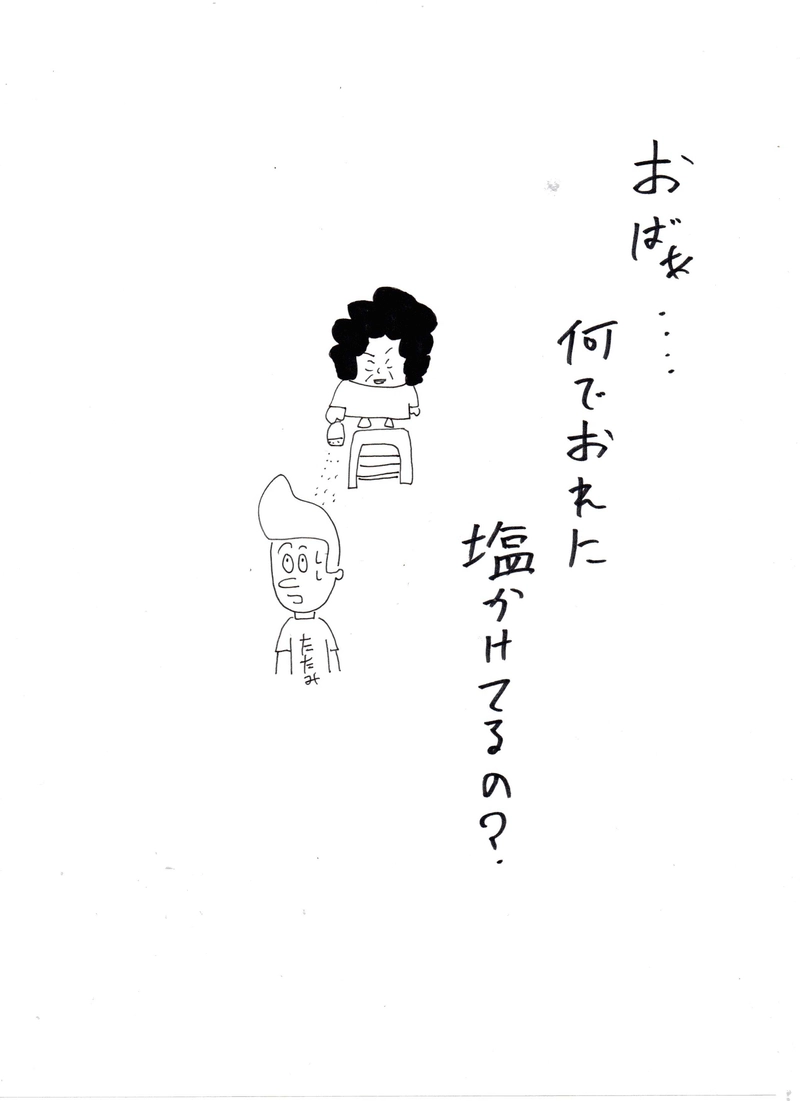 おばぁ‥‥
何でおれに
塩かけてるの?
たたみ